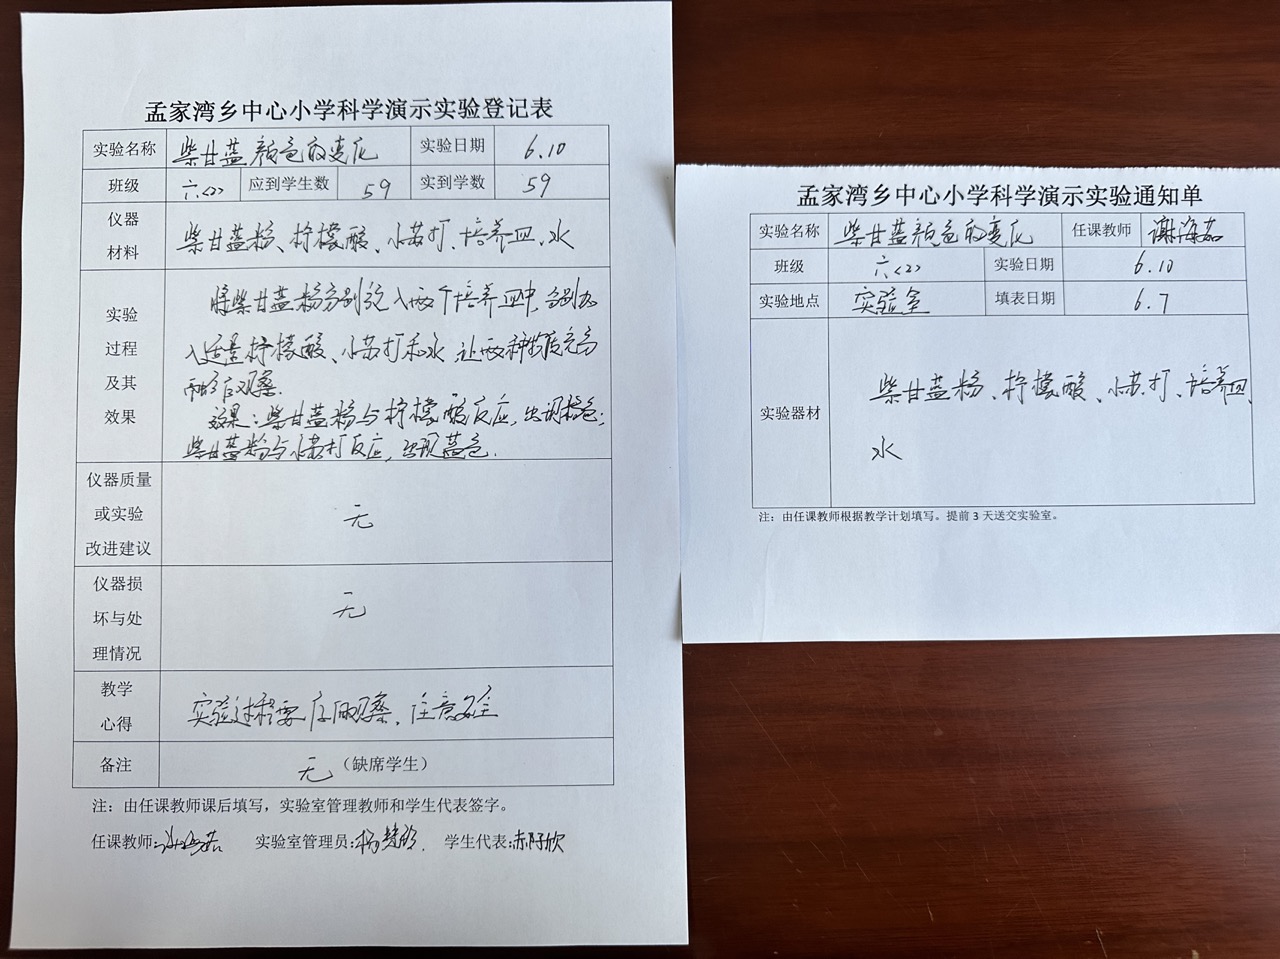 孟家湾乡中心小学科学演示实验登记表
实验名称 柴甘蓝颜色的变化 实验日期 6.10
班级 六<2> 应到学生数 59 实到学数 59
仪器材料 柴甘蓝粉、柠檬酸、小苏打、培养皿、水
实验过程及其效果
将柴甘蓝粉分别放入两个培养皿中,分别加
入适量柠檬酸、小苏打和水,让两种物质充分
融合后观察.
效果:柴甘蓝粉与柠檬酸反应,出调橙色;
柴甘蓝粉与小苏打反应,出现蓝色.
仪器质量或实验改进建议 无
仪器损坏与处理情况 无
教学心得 实验过程要仔细观察、注意安全
备注 无(缺席学生)
注:由任课教师课后填写,实验室管理教师和学生代表签字。
任课教师: 实验室管理员: 学生代表:
孟家湾乡中心小学科学演示实验通知单
实验名称 柴甘蓝颜色的变化 任课教师 谢海茹
班级 六<2> 实验日期 6.10
实验地点 实验室 填表日期 6.7
实验器材 柴甘蓝粉、柠檬酸、小苏打、培养皿、
水
注:由任课教师根据教学计划填写。提前 3 天送交实验室。